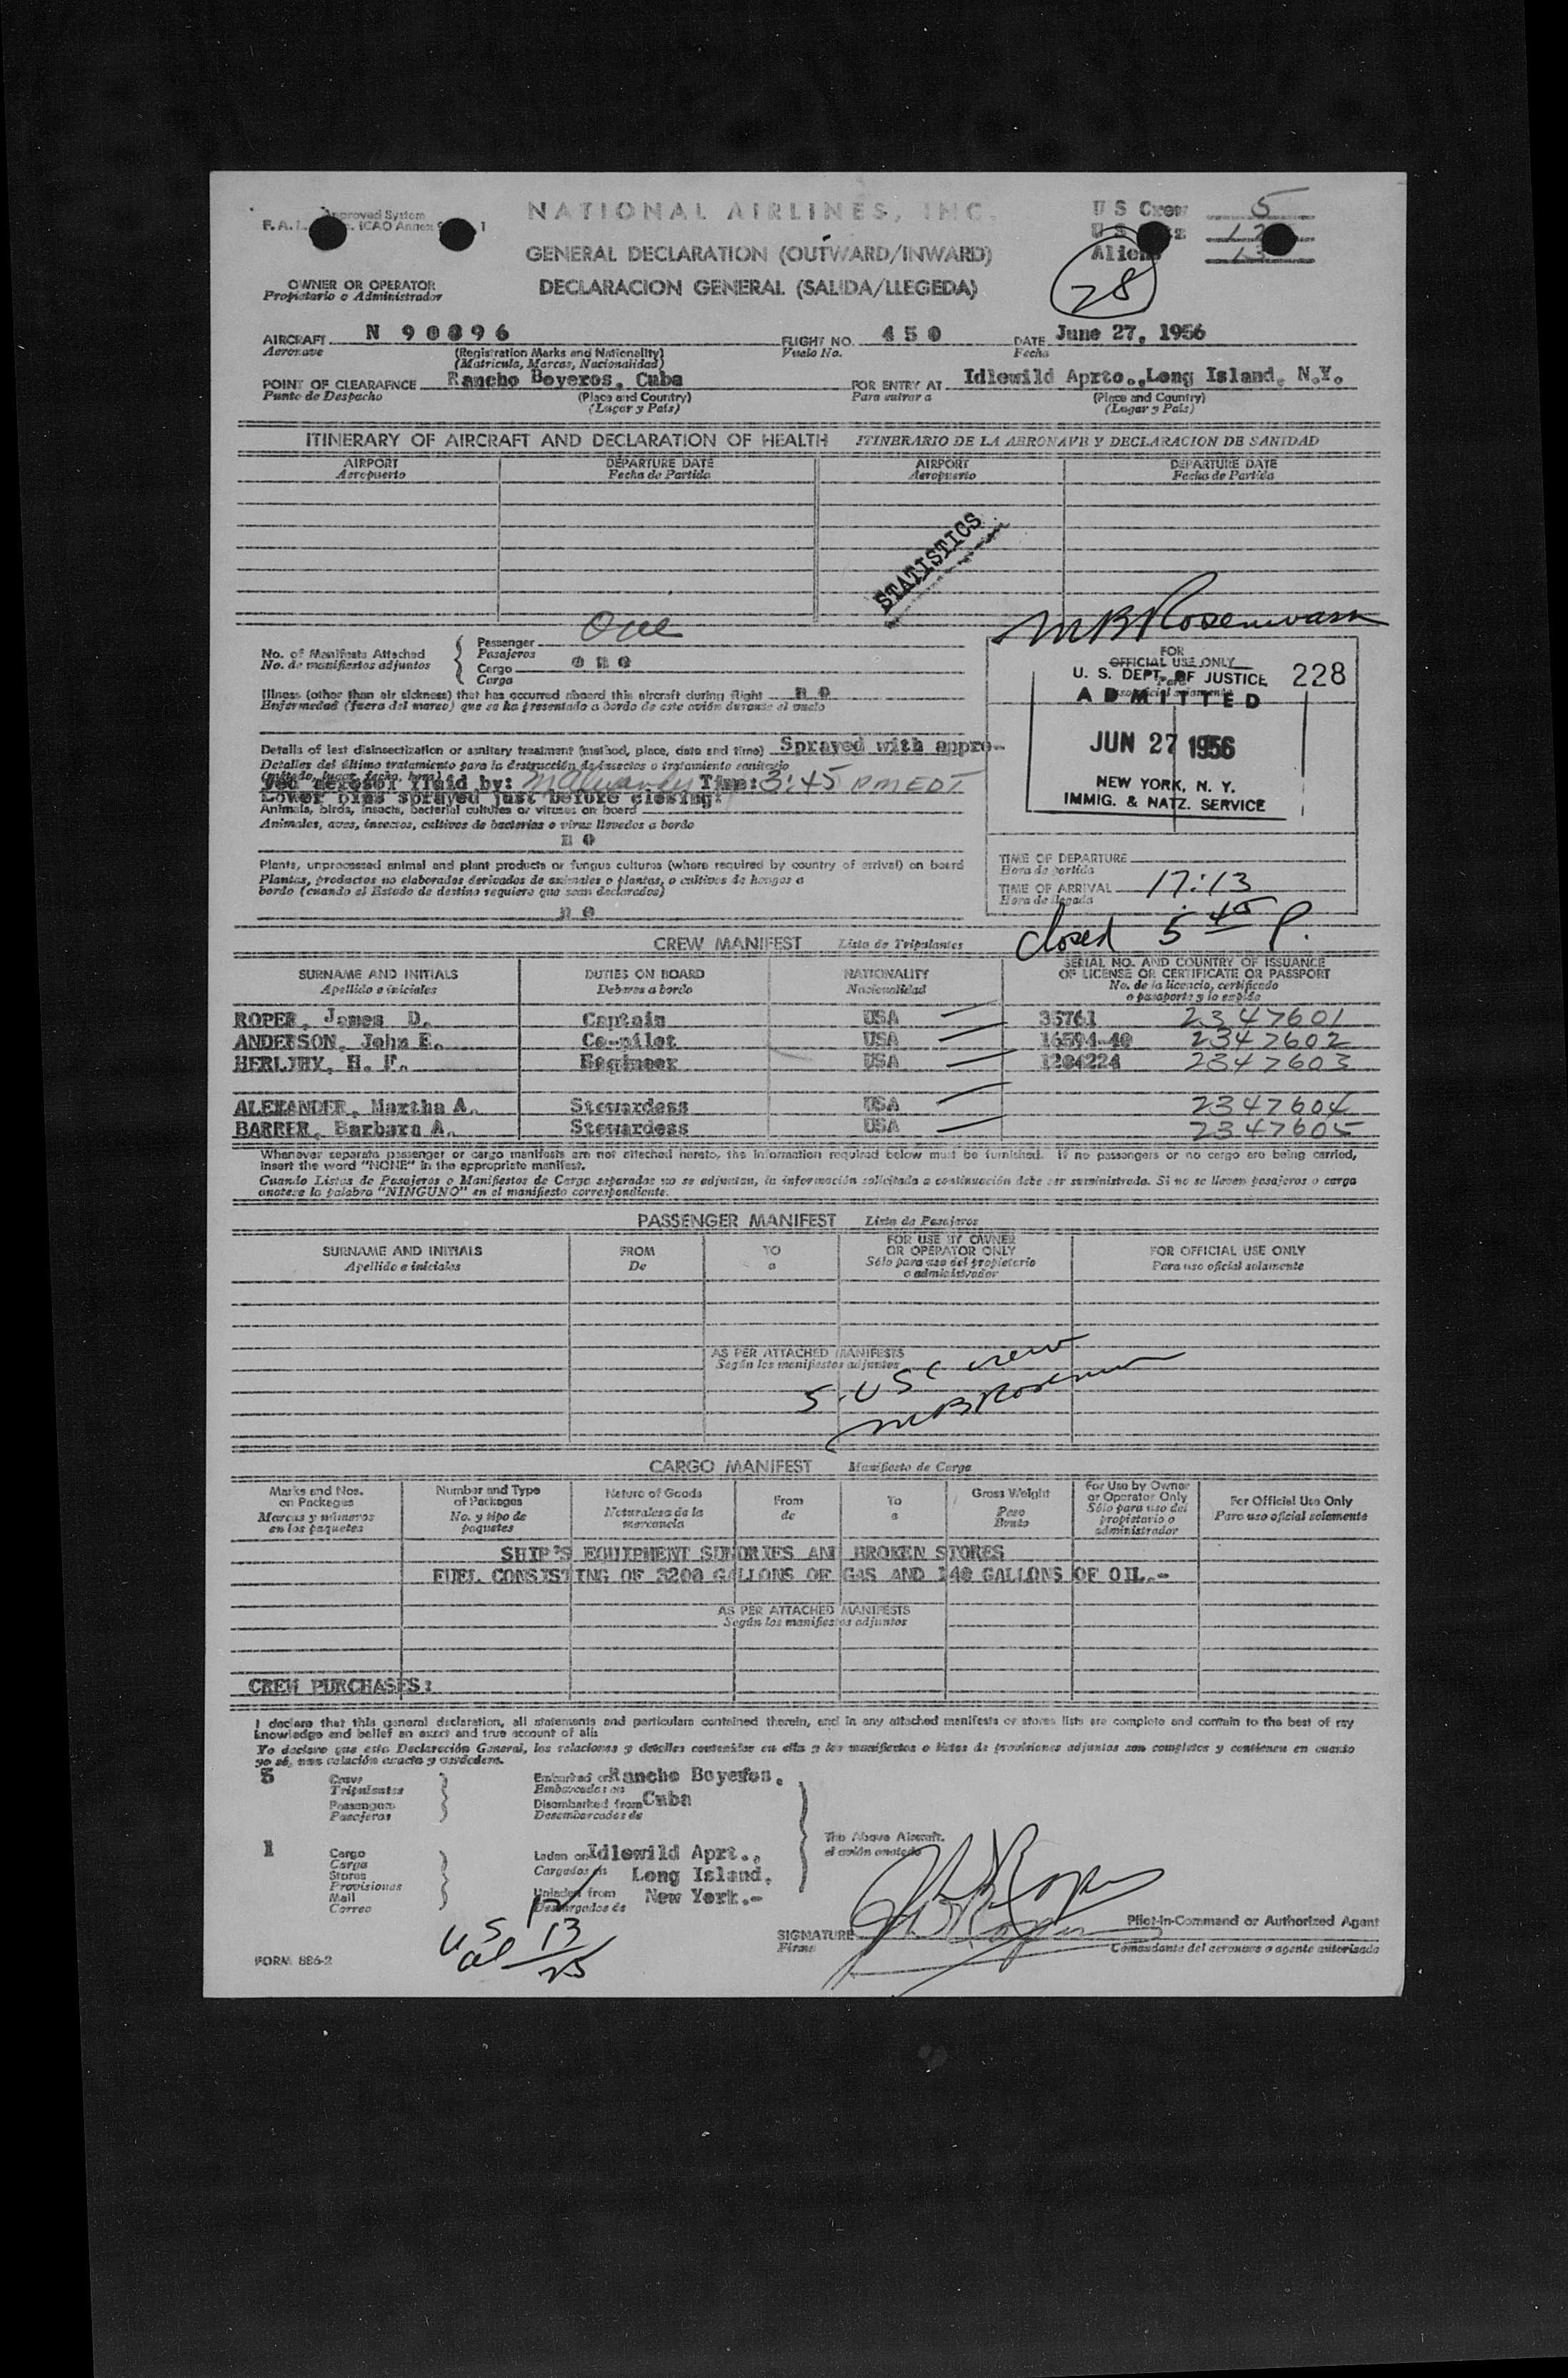 Approved System
F. A. L. ICAO Annex 9 1
NATIONAL AIRLINES, INC.
GENERAL DECLARATION (OUTWARD/INWARD)
DECLARACION GENERAL (SALIDA/LLEGEDA)
U S Crew 5
U S
Aliens 13
28
OWNER OR OPERATOR
Propietario o Administrador
AIRCRAFT N 90896 FLIGHT NO. 450 DATE June 27, 1956
Aeronave (Registration Marks and Nationality) Vuelo No. Fecha
(Matricula, Marcas, Nacionalidad)
POINT OF CLEARAFNCE Rancho Boyeros, Cuba FOR ENTRY AT Idlewild Aprto.,Long Island, N.Y.
Punto de Despacho (Place and Country) Para entrar a (Place and Country)
(Lugar y Pais) (Lugar y Pais)
ITINERARY OF AIRCRAFT AND DECLARATION OF HEALTH ITINERARIO DE LA AERONAVE Y DECLARACION DE SANIDAD
AIRPORT DEPARTURE DATE AIRPORT DEPARTURE DATE
Aeropuerto Fecha de Partida Aeropuerto Fecha de Partida
STATISTICS
No. of Manifests Attached
No. de manifiestos adjuntos
Passenger One
Pasajeros
Cargo one
Carga
Illness (other than air sickness) that has occurred aboard this aircraft during flight no
Enfermedad (fuera del mareo) que se ha presentado a bordo de este avión durante el vuelo
Details of last disinsectization or sanitary treatment (method, place, date and time) Sprayed with appro-
Detalles del último tratamiento para la destrucción de insectos o tratamiento sanitario
(método, lugar, fecha, hora)
ved aerosol fluid by: M Alexander Time: 3:45 PM EDT
Lower bins sprayed just before closing.
Animals, birds, insects, bacterial cultures or viruses on board
Animales, aves, insectos, cultivos de bacterias o virus llevados a bordo
no
Plants, unprocessed animal and plant products or fungus cultures (where required by country of arrival) on board
Plantas, productos no elaborados derivados de animales o plantas, o cultivos de hongos a
bordo (cuando el Estado de destino requiera que sean declarados)
no
FOR
OFFICIAL USE ONLY
U. S. DEPT. OF JUSTICE 228
ADMITTED
JUN 27 1956
NEW YORK, N. Y.
IMMIG. & NATZ. SERVICE
TIME OF DEPARTURE
Hora de partida
TIME OF ARRIVAL 17:13
Hora de llegada
closed 5 45 P.
CREW MANIFEST Lista de Tripulantes
SURNAME AND INITIALS DUTIES ON BOARD NATIONALITY SERIAL NO. AND COUNTRY OF ISSUANCE
OF LICENSE OR CERTIFICATE OR PASSPORT
Apellido e iniciales Deberes a bordo Nacionalidad No. de la licencia, certificado
o pasaporte y lo expide
ROPER, James D. Captain USA 35761 2347601
ANDERSON, John E. Co-pilot USA 16594-40 2347602
HERLIHY, H. F. Engineer USA 1284224 2347603
ALEXANDER, Martha A. Stewardess USA 2347604
BARRER, Barbara A. Stewardess USA 2347605
Whenever separate passenger or cargo manifests are not attached hereto, the information required below must be furnished. If no passengers or no cargo are being carried,
insert the word "NONE" in the appropriate manifest.
Cuando Listas de Pasajeros o Manifiestos de Carga separados no se adjuntan, la información solicitada a continuación debe ser suministrada. Si no se llevan pasajeros o carga
anotese la palabra "NINGUNO" en el manifiesto correspondiente.
PASSENGER MANIFEST Lista de Pasajeros
SURNAME AND INITIALS FROM TO FOR USE BY OWNER
OR OPERATOR ONLY FOR OFFICIAL USE ONLY
Apellido e iniciales De a Sólo para uso del propietario
o administrador Para uso oficial solamente
AS PER ATTACHED MANIFESTS
Según los manifiestos adjuntos
5 USC crew
CARGO MANIFEST Manifiesto de Carga
Marks and Nos.
on Packages
Marcas y números
en los paquetes
Number and Type
of Packages
No. y tipo de
paquetes
Nature of Goods
Naturaleza de la
mercancía
From
de
To
a
Gross Weight
Peso
Bruto
For Use by Owner
or Operator Only
Sólo para uso del
propietario o
administrador
For Official Use Only
Para uso oficial solamente
SHIP'S EQUIPMENT SUNDRIES AND BROKEN STORES
FUEL CONSISTING OF 3200 GALLONS OF GAS AND 140 GALLONS OF OIL.-
AS PER ATTACHED MANIFESTS
Según los manifiestos adjuntos
CREW PURCHASES:
I declare that this general declaration, all statements and particulars contained therein, and in any attached manifests or stores lists are complete and contain to the best of my
knowledge and belief an exact and true account of all:
Yo declaro que esta Declaración General, las relaciones y detalles contenidos en ella y los manifiestos o listas de provisiones adjuntas son completos y contienen en cuanto
yo sé, una relación exacta y verdadera.
5 Crews
Tripulantes
Passengers
Pasajeros
Embarked on Rancho Boyeros,
Embarcados en
Disembarked from Cuba
Desembarcados de
1 Cargo
Carga
Stores
Provisiones
Mail
Correo
Laden on Idlewild Aprt.,
Cargados en Long Island,
Unladen from New York.-
Descargados de
The Above Aircraft.
el avión anotado
U S 12
al 13
25
SIGNATURE
Firma
Pilot-in-Command or Authorized Agent
Comandante del aeronave o agente autorizado
FORM 886-2